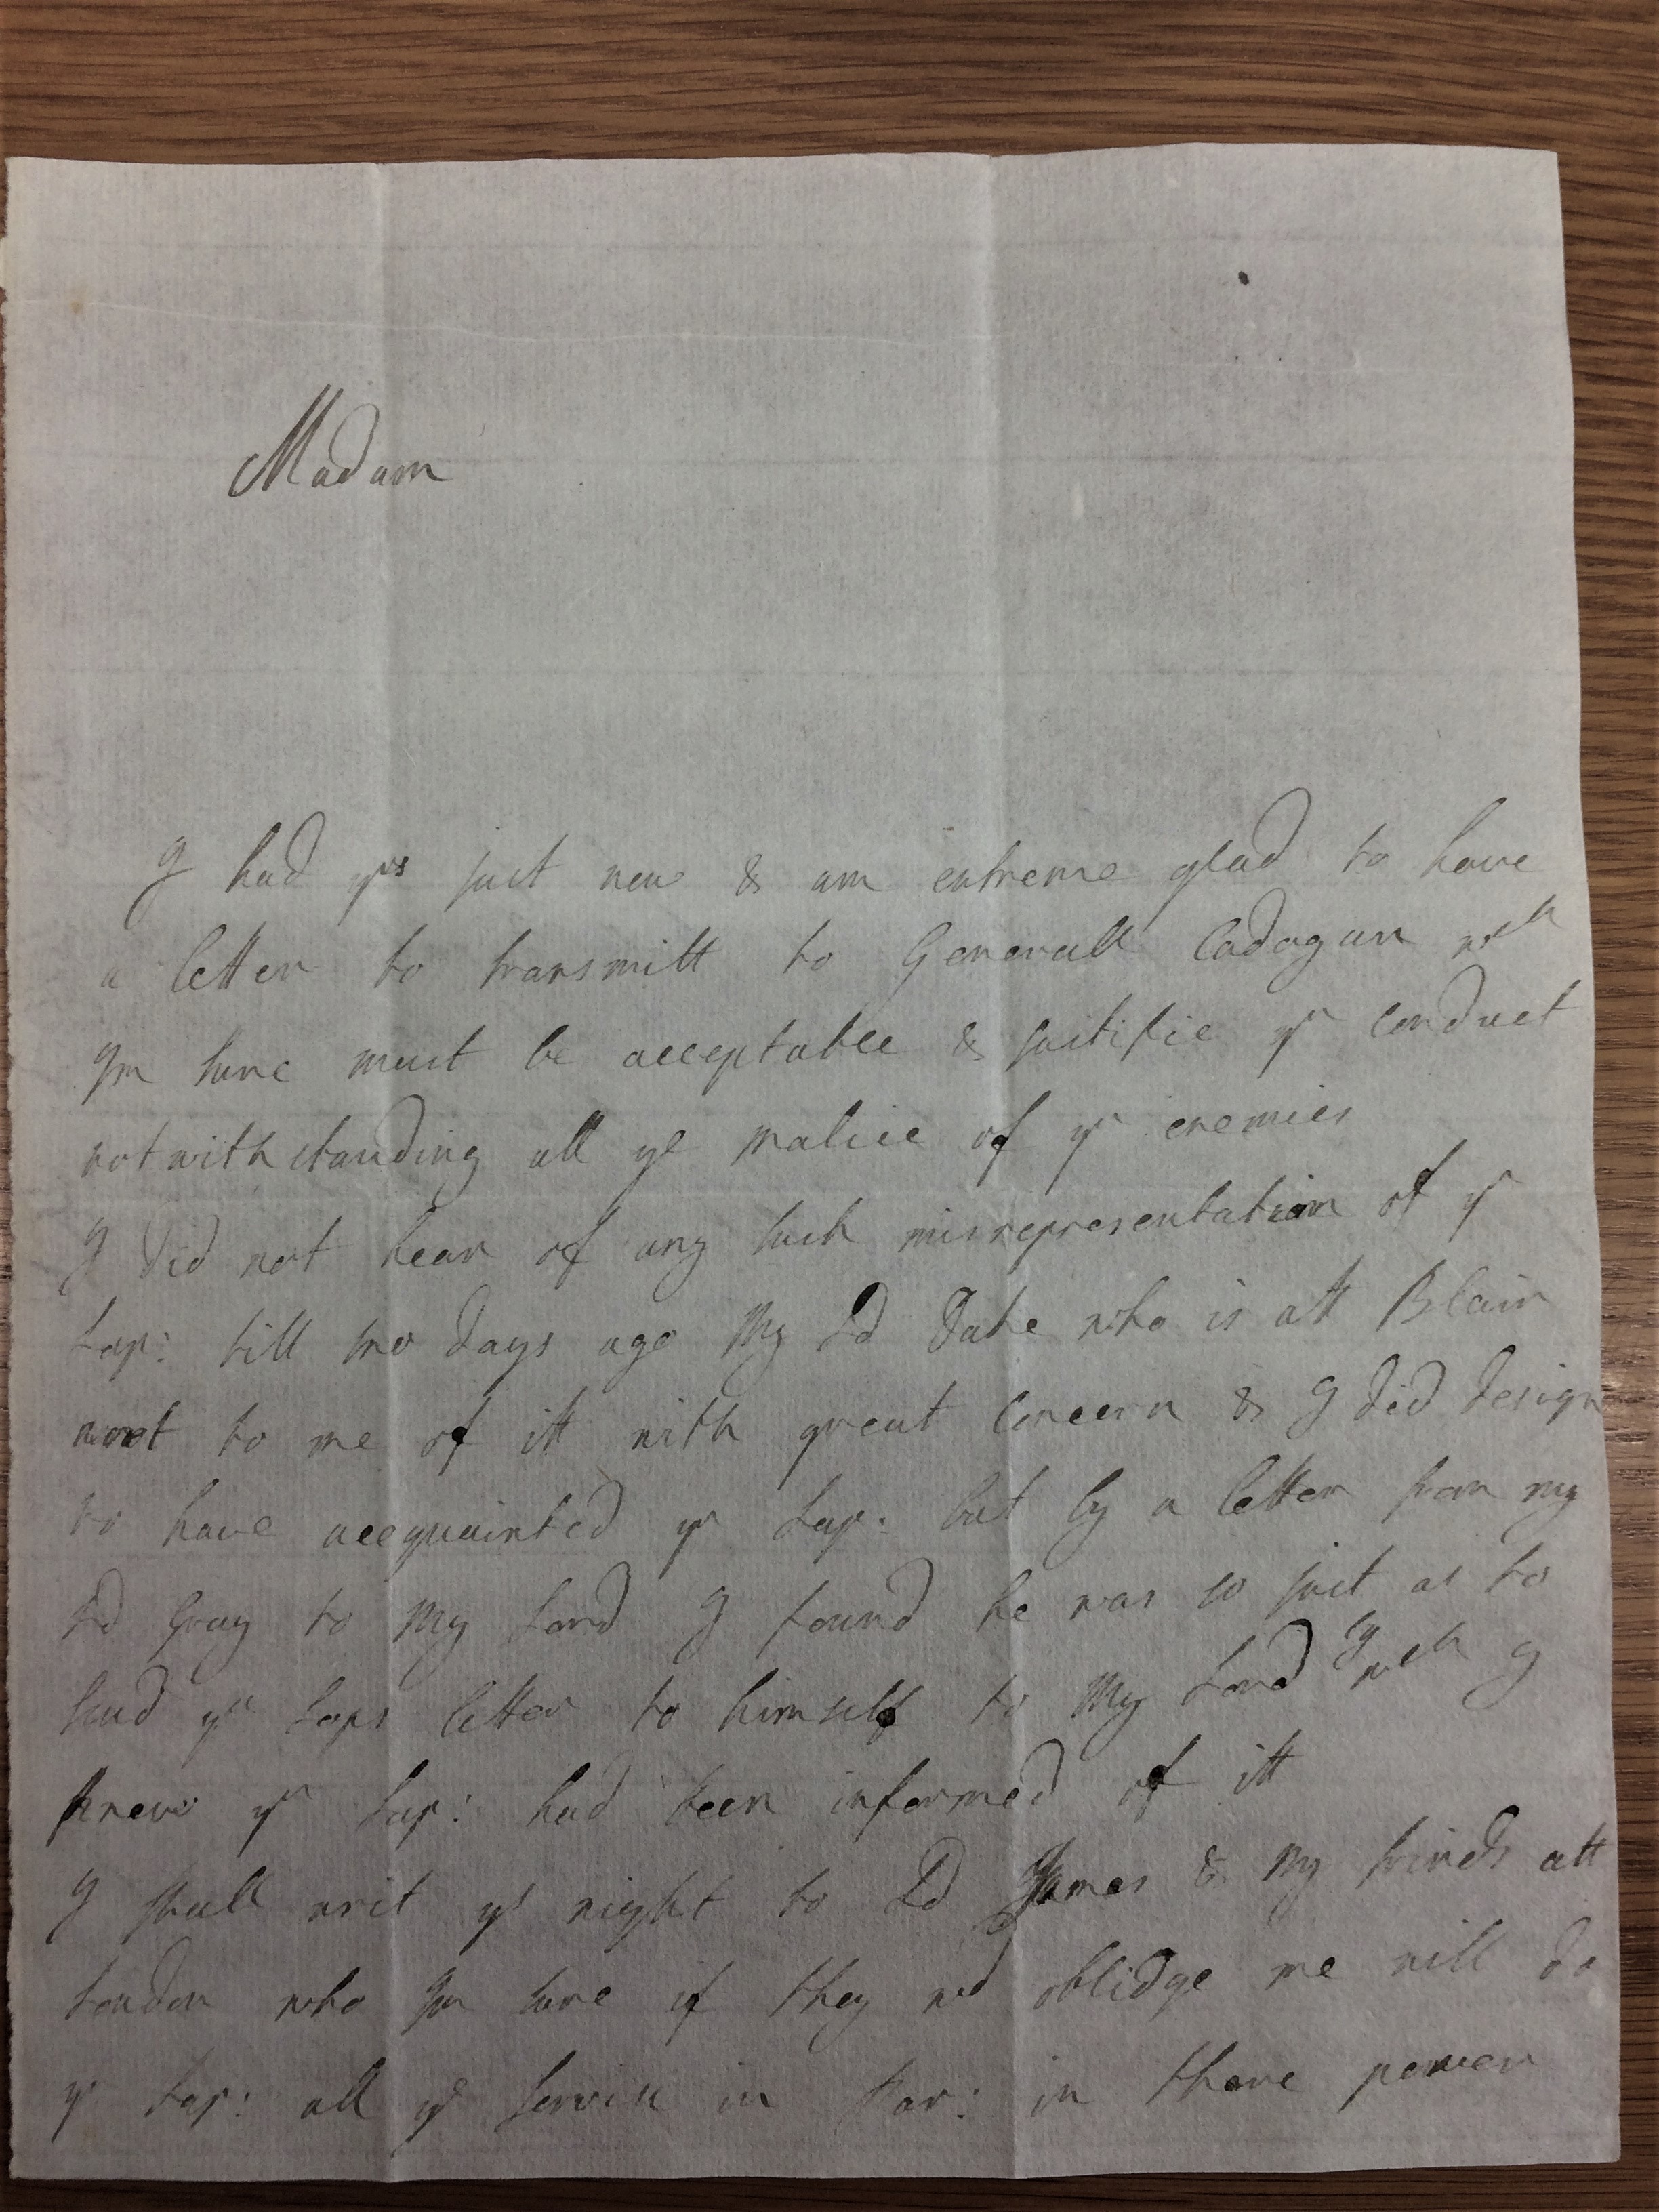 Madam
I had yrs just now & am extreme glad to have
a letter to transmitt to Generall Cadogan wch
I'm sure must be acceptable & justifie yr conduct
notwithstanding all ye malice of yr enemies
I did not hear of any such misrepresentation of yr
Lap: till two days ago My Ld Tate who is att Blair
wrot to me of itt with great concern & I did design
to have acequainted yr Lap: but by a letter from my
Ld Gray to My Lord I found he was so just as to
send yr Laps letter to himself to My Lord wch I
knew yr Lap: had been informed of itt
I shall writ ys night to Ld James & My frinds att
London who I'm sure if they wd oblidge me will do
yr Lap: all ye servise in par: in there power